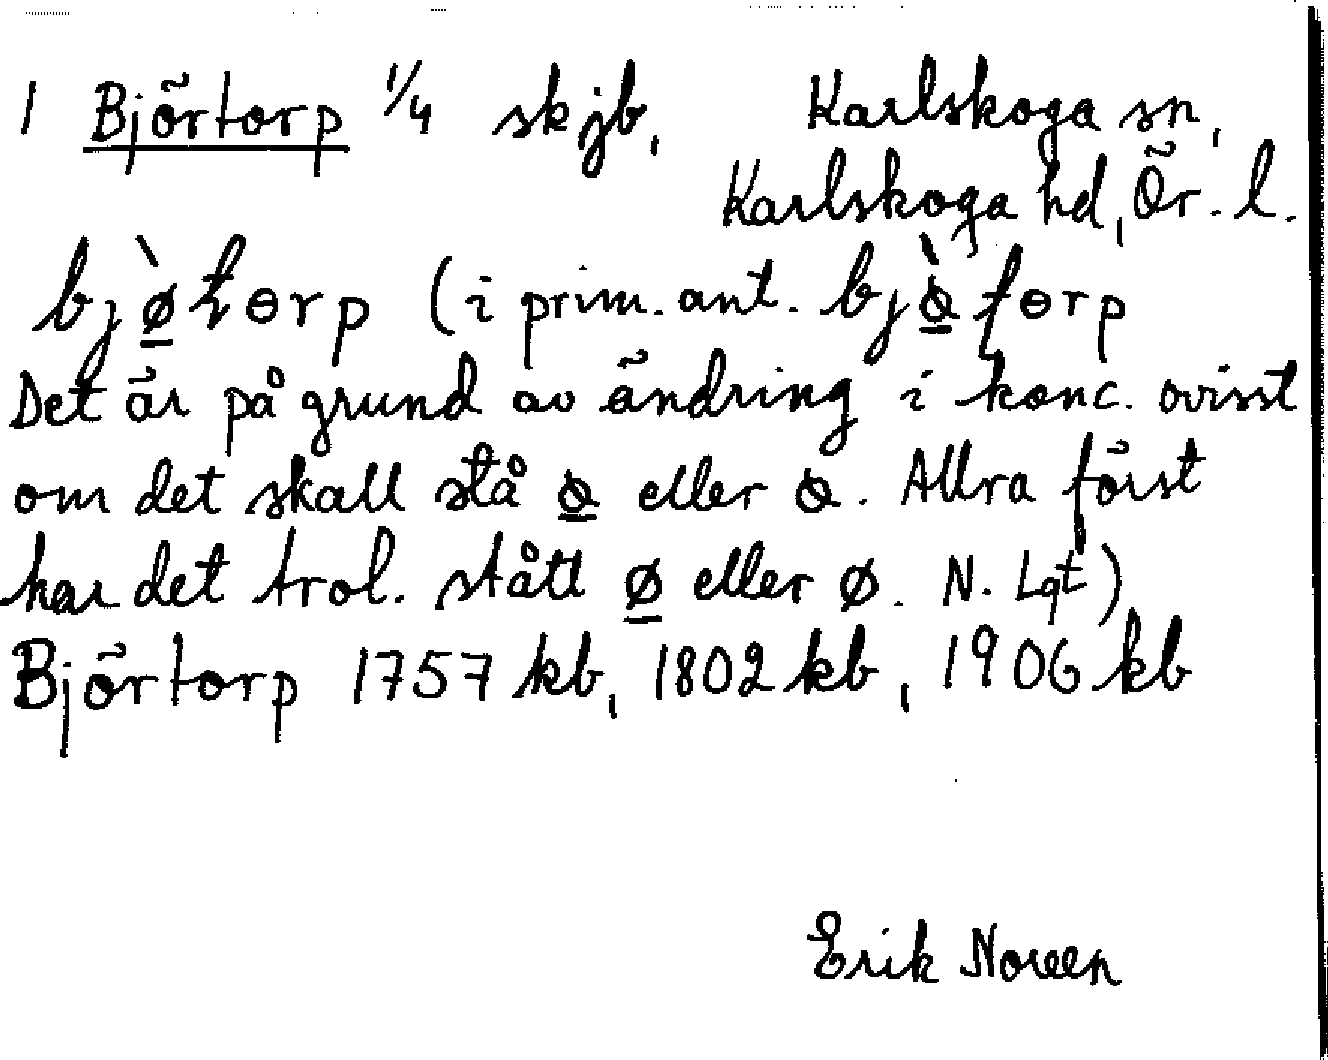 1 Björtorp 1/4 skjb, Karlskoga sn,
Karlskoga hd, Ör. l.
bjø̲̀tɵrp (i prim. ant. bjò̲tɵrp
Det är på grund av ändring i konc. ovisst
om det skall stå eller. Allra först
har det trol. stått ø̲ eller ø. N. Lqt)
Björtorp 1757 kb, 1802 kb, 1906 kb
Erik Noreen